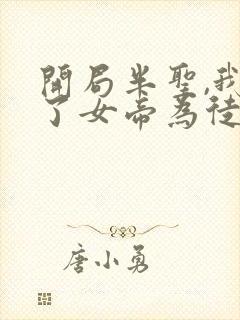 開局半聖,我
了女帝為徒
唐小勇